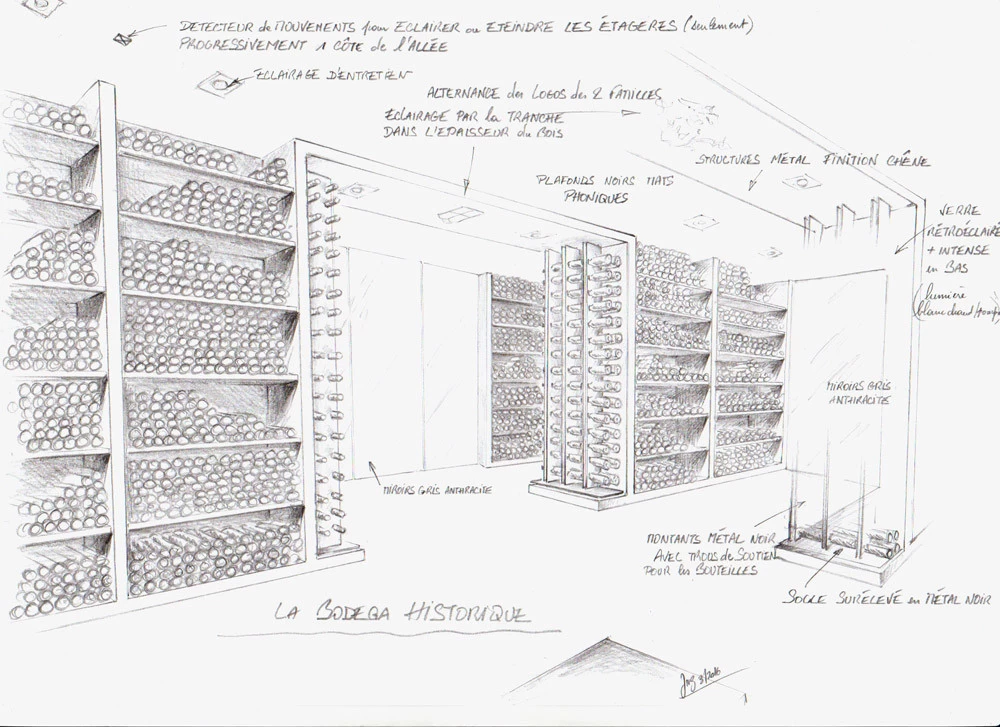 DETECTEUR de MOUVEMENTS pour ECLAIRER ou ETEINDRE LES ÉTAGERES (seulement)
PROGRESSIVEMENT 1 CÔTE de l'ALLÉE
ECLAIRAGE D'ENTRETIEN
ALTERNANCE des LOGOS des 2 FAMILLES
ECLAIRAGE PAR la TRANCHE
DANS L'EPAISSEUR du BOIS
STRUCTURES MÉTAL FINITION CHÊNE
PLAFONDS NOIRS MATS
PHONIQUES
VERRE
RÉTROÉCLAIRÉ
+ INTENSE
en BAS
(lumière
MIROIRS GRIS
ANTHRACITE
MIROIRS GRIS ANTHRACITE
MONTANTS MÉTAL NOIR
AVEC TROUS de SOUTIEN
POUR les BOUTEILLES
SOCLE SURÉLEVÉ en MÉTAL NOIR
LA BODEGA HISTORIQUE